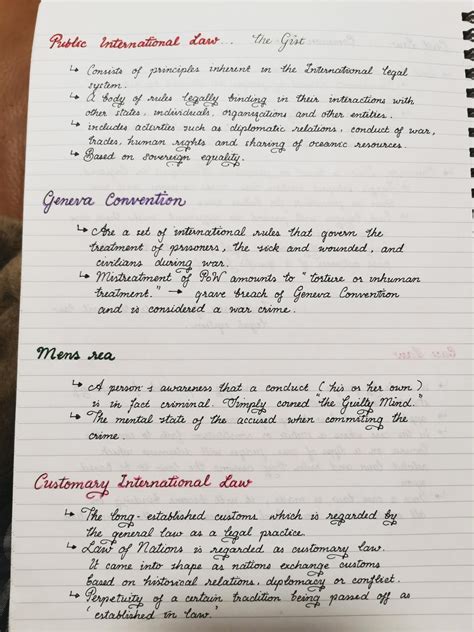 Public International Law... the Gist
↳ Consists of principles inherent in the International legal
system.
↳ A body of rules legally binding in their interactions with
other states, individuals, organizations and other entities.
↳ includes activities such as diplomatic relations, conduct of war,
trades, human rights and sharing of oceanic resources.
↳ Based on sovereign equality.
Geneva Convention
↳ Are a set of international rules that govern the
treatment of prisoners, the sick and wounded, and
civilians during war.
↳ Mistreatment of PoW amounts to "torture or inhuman
treatment." → grave breach of Geneva Convention
and is considered a war crime.
Mens rea
↳ A person's awareness that a conduct (his or her own)
is in fact criminal. Simply coined "the Guilty Mind."
↳ The mental state of the accused when commiting the
crime.
Customary International Law
↳ The long-established customs which is regarded by
the general law as a legal practice.
↳ Law of Nations is regarded as customary law.
It came into shape as nations exchange customs
based on historical relations, diplomacy or conflict.
↳ Perpetuity of a certain tradition being passed off as
'established in law.'